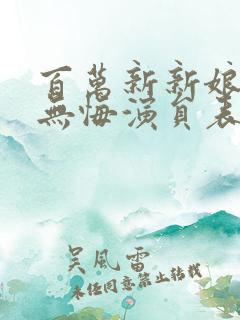 百萬新新娘
無悔演員表
吴風雷
未经同意禁止转载